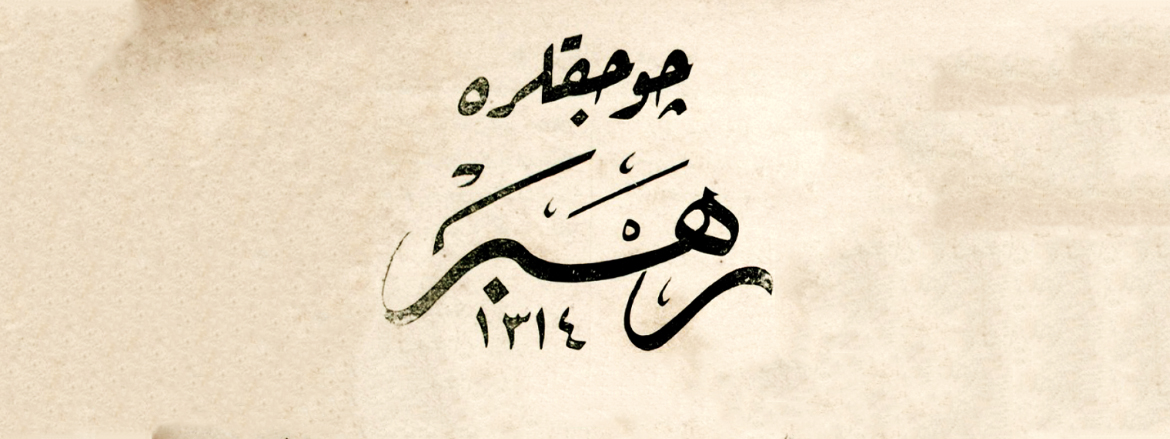 چوجقلره
رهبر
١٣١٤